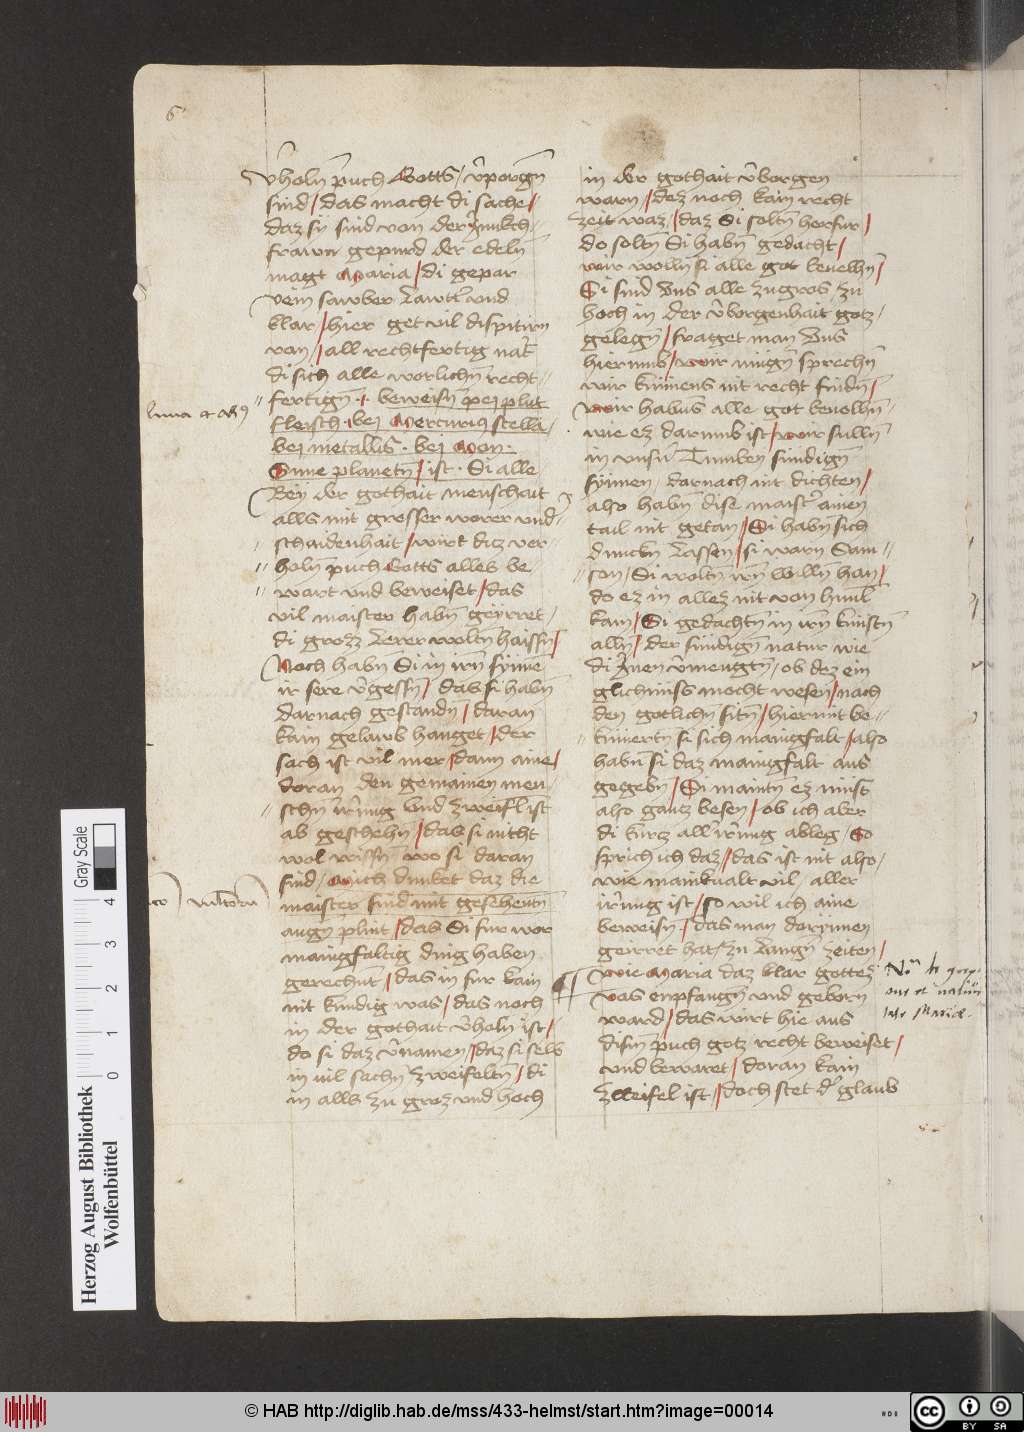 6
v̂holn̄ puch Gotts / v̂porgn̄
sind / das macht di sache /
daz sy sind von der Junkch-
frawn gepurd der edeln̄
magt Maria / di gepar
sawber lawtt̄ vnd
klar / hier get vil dispitirn
von / all rechtfertig nat̄
di sich alle worlichn̄ recht-
fertign̄ · beweisn̄ pei plut
fleisch · bei Mercurius stella
bei metallis · bei Mon ·
Sunne planetn̄ / ist · Si alle
Bey der gothait menschait
alls mit grosser worer vnd-
schaidenhait / wirt diz ver-
holn̄ puch Gotts alles be-
wart vnd beweiset / das
vil maister habn̄ geyrret
di grozz lerer woltn̄ haissn̄ /
Noch habn̄ Si in irn̄ synnē
ir sere v̂gessn̄ / das si habn̄
darnach gestandn̄ / daran
kain gelaub hanget / der
sach ist vil mer / dann aine /
doran den gemainen men-
schn̄ irrung vnd zweifl ist
ab geschehn̄ / das si nicht
wol wissn̄ wo si daran
sind / Mich dunket daz die
maister sind mit gesehentn̄
augn̄ plint / das Si fur wor
mainigfaltig ding haben
gerechnt / das in fur kain
nit kundig was / das noch
in der gothait v̂holn̄ ist /
do si daz v̂namen / daz si selb
in vil sachn̄ zweifeltn̄ / di
in alls zu groz vnd hoch
in der gothait v̂borgen
warn / dez noch kain recht
zeit waz / daz Si soltn̄ herfur /
do soltn̄ Si habn̄ gedacht /
wir wolln̄ si alle got beuelhn̄ /
Si sind vns alle zu gros / zu
hoch in der v̂borgenhait gotz /
gelegn̄ / fraget man vns
hierumb / wir mugn̄ sprechn̄
wir kunnens nit recht findn̄ /
wir habens alle got beuolhn̄
wie ez darumb ist / wir sulln̄
in vnsn̄ Tumben sundign̄
synnen / darnach nit dichten /
also habn̄ dise maist̄ ainen
tail nit getan / Si habn̄ sich
dunckn̄ lassen / si warn Sam-
son / Si woltn̄ irn̄ willn̄ han /
do ez in allez nit von himl̄
kam / Si gedachtn̄ in irn̄ kunstn̄
alln̄ / der sundign̄ natur wie
di Irren v̂mengtn̄ / ob dez ein
glichniss mocht wesen / nach
den gotlichn̄ sitn̄ / hiermit be-
kumertn̄ si sich mainigfalt / also
habn̄ si daz mainigfalt aus
gegebn̄ / Si maintn̄ ez must
also gantz besen / ob ich aber
di kurcz all irrung ableg / So
sprich ich daz / das ist nit also /
wie mainkualt vil / aller
irrung ist / so wil ich aine
beweisn̄ / das man darynnen
geirret hat / zu langn̄ zeiten /
wie Maria daz klar gottez
vas enpfangn̄ vnd geborn
ward / das wirt hie aus
disem̄ puch gotz recht beweiset /
vnd bewaret / doran kain
zweifel ist / doch stet d̓ glaub
Herzog August Bibliothek
Wolfenbüttel
Gray Scale
0 1 2 3 4
© HAB http://diglib.hab.de/mss/433-helmst/start.htm?image=00014
cc BY SA